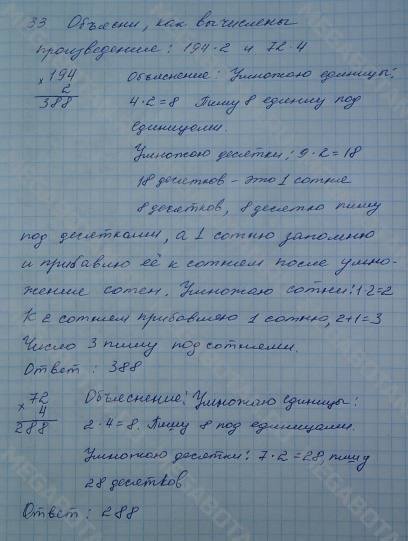 33 Объясни, как вычислены
произведение: 194·2 и 72·4
× 194
2
388
Объяснение: Умножаю единицы:
4·2=8 Пишу 8 единиц под
единицами.
Умножаю десятки: 9·2=18
18 десятков - это 1 сотня
8 десятков, 8 десятков пишу
под десятками, а 1 сотню запомню
и прибавлю её к сотням после умно-
жение сотен. Умножаю сотни: 1·2=2
К 2 сотням прибавляю 1 сотню, 2+1=3
Число 3 пишу под сотнями.
Ответ: 388
× 72
4
288
Объяснение: Умножаю единицы:
2·4=8. Пишу 8 под единицами.
Умножаю десятки: 7·2=28, пишу
28 десятков
Ответ: 288